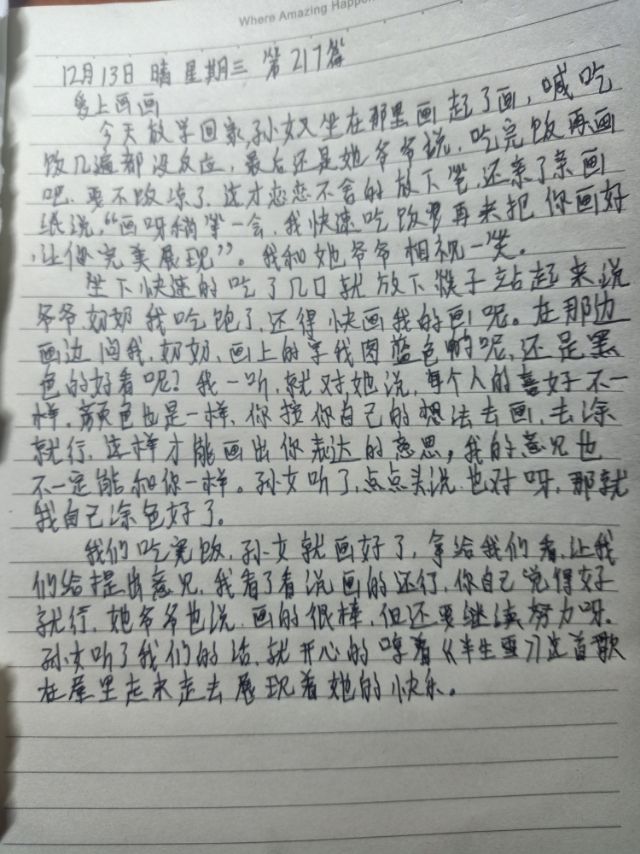 Where Amazing Happen
12月13日 晴 星期三 第217篇
爱上画画
今天放学回家,孙女又坐在那里画起了画,喊吃
饭几遍都没反应,最后还是她爷爷说,吃完饭再画
吧,要不饭凉了,这才恋恋不舍的放下笔,还亲了亲画
纸说,“画呀稍等一会,我快速吃饭再来把你画好
,让你完美展现”。我和她爷爷相视一笑。
坐下快速的吃了几口就放下筷子站起来,说
爷爷,奶奶我吃饱了,还得快画我的画呢。在那边
画边问我,奶奶,画上的字我图蓝色的呢,还是黑
色的好看呢?我一听,就对她说,每个人的喜好不一
样,颜色也是一样,你按你自己的想法去画,去涂
就行,这样才能画出你表达的意思,我的意见也
不一定能和你一样。孙女听了,点点头说,也对呀,那就
我自己涂色好了。
我们吃完饭,孙女就画好了,拿给我们看,让我
们给提出意见,我看了看说画的还行,你自己觉得好
就行,她爷爷也说,画的很棒,但还要继续努力呀。
孙女听了我们的话,就开心的哼着《半生雪》这首歌
在屋里走来走去展现着她的快乐。